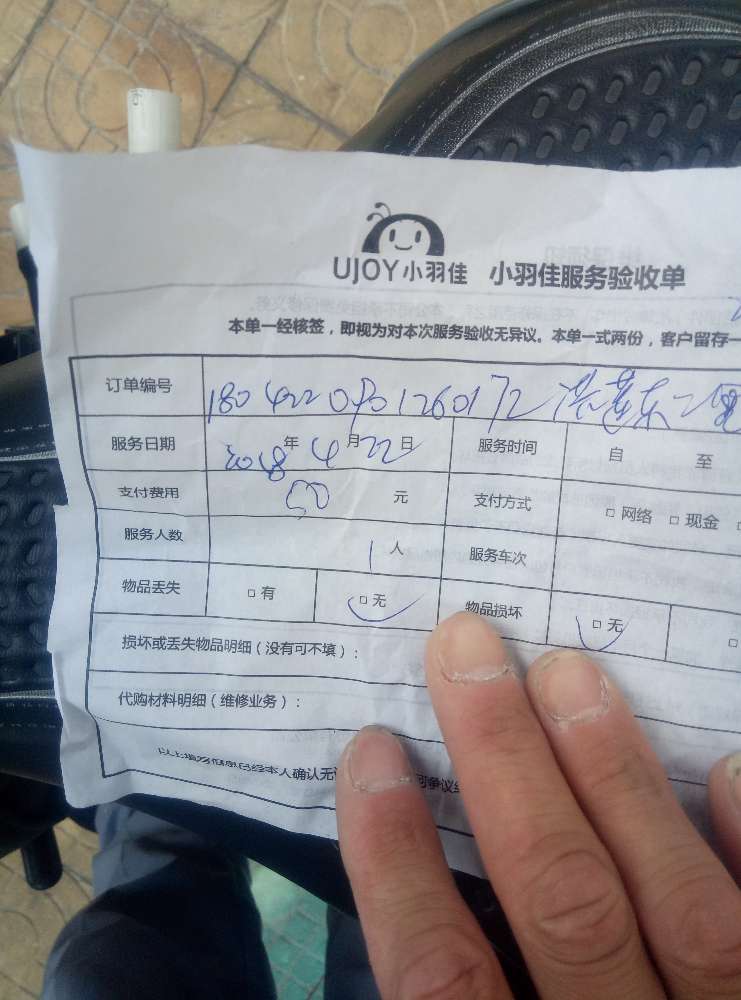 UJOY小羽佳 小羽佳服务验收单
本单一经核签，即视为对本次服务验收无异议。本单一式两份，客户留存一
订单编号 1804220901260172
服务日期 2018年4月22日 服务时间 自 至
支付费用 50元 支付方式 □ 网络 □ 现金 □
服务人数 1人 服务车次
物品丢失 □ 有 □ 无 物品损坏 □ 无 □
损坏或丢失物品明细（没有可不填）：
代购材料明细（维修业务）：
以上填写信息已经本人确认无 可争议